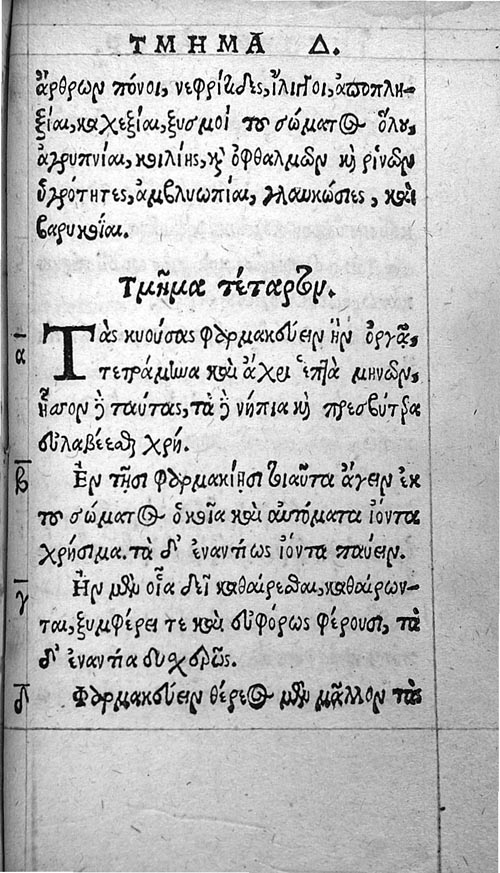 ΤΜΗΜΑ Δ.
ἄρθρων πόνοι, νεφρίτιδες, ἴλιγγοι, ἀποπλη-
ξίαι, καχεξίαι, ξυσμοὶ τοῦ σώματος ὅλου,
ἀγρυπνίαι, κοιλίης, κ̀ ὀφθαλμῶν κ̀ ῥινῶν
ὑγρότητες, ἀμβλυωπίαι, γλαυκώσιες, καὶ
βαρυκοΐαι.
Τμῆμα τέταρτον.
α Τὰς κυούσας φαρμακεύειν ἢν ὀργᾷ,
τετράμηνα καὶ ἄχρι ἑπτὰ μηνῶν,
ἧσσον δὲ ταύτας, τὰ δὲ νήπια κ̀ πρεσβύτερα
εὐλαβέεσθαι χρή.
β Ἐν τῇσι φαρμακίῃσι τοιαῦτα ἄγειν ἐκ
τοῦ σώματος ὁκοῖα καὶ αὐτόματα ἰόντα
χρήσιμα. τὰ δ' ἐναντίως ἰόντα παύειν.
γ Ἢν μὲν οἷα δεῖ καθαίρεσθαι, καθαίρων-
ται, ξυμφέρει τε καὶ εὐφόρως φέρουσι, τὰ
δ' ἐναντία δυσχερῶς.
δ Φαρμακεύειν θέρεος μὲν μᾶλλον τὰς